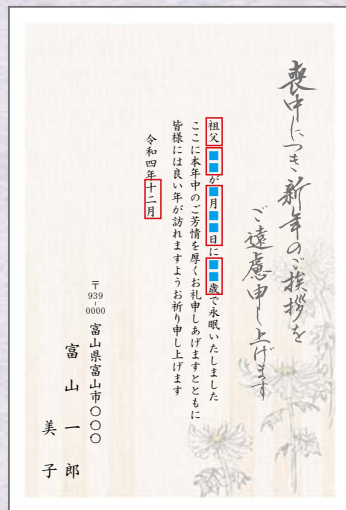 喪中につき新年のご挨拶を
ご遠慮申し上げます
祖父■■が■月■■日に■■歳で永眠いたしました
ここに本年中のご芳情を厚くお礼申しあげますとともに
皆様には良い年が訪れますようお祈り申し上げます
令和四年十二月
〒939-0000
富山県富山市〇〇〇
富山一郎
美子